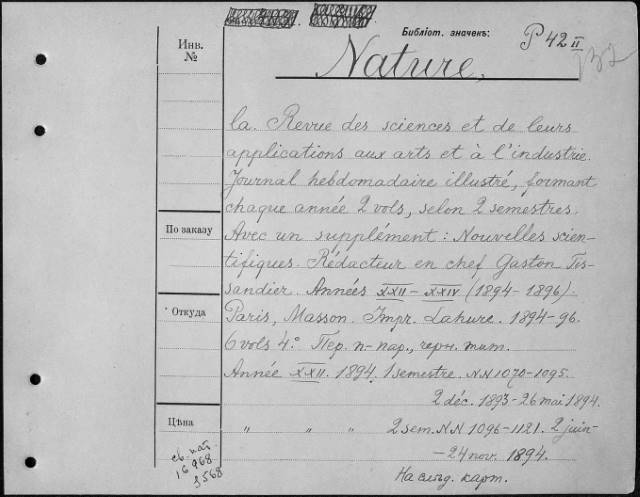 Библіот. значекъ: P 42 II
132
Инв. №
Nature,
la. Revue des sciences et de leurs
applications aux arts et à l'industrie.
Journal hebdomadaire illustré, formant
chaque année 2 vols, selon 2 semestres.
По заказу
Avec un supplément: Nouvelles scien-
tifiques. Rédacteur en chef Gaston Tis-
sandier. Années XXII-XXIV (1894-1896).
Откуда
Paris, Masson. Impr. Lahure. 1894-96.
6 vols 4°. Пер. п-пар., черн. тит.
Année XXII. 1894. 1 semestre. NN 1070-1095.
2 déc. 1893-26 mai 1894.
Цѣна
" " " 2 sem. NN 1096-1121. 2 juin-
-24 nov. 1894.
16968
3568
На слѣд. карт.